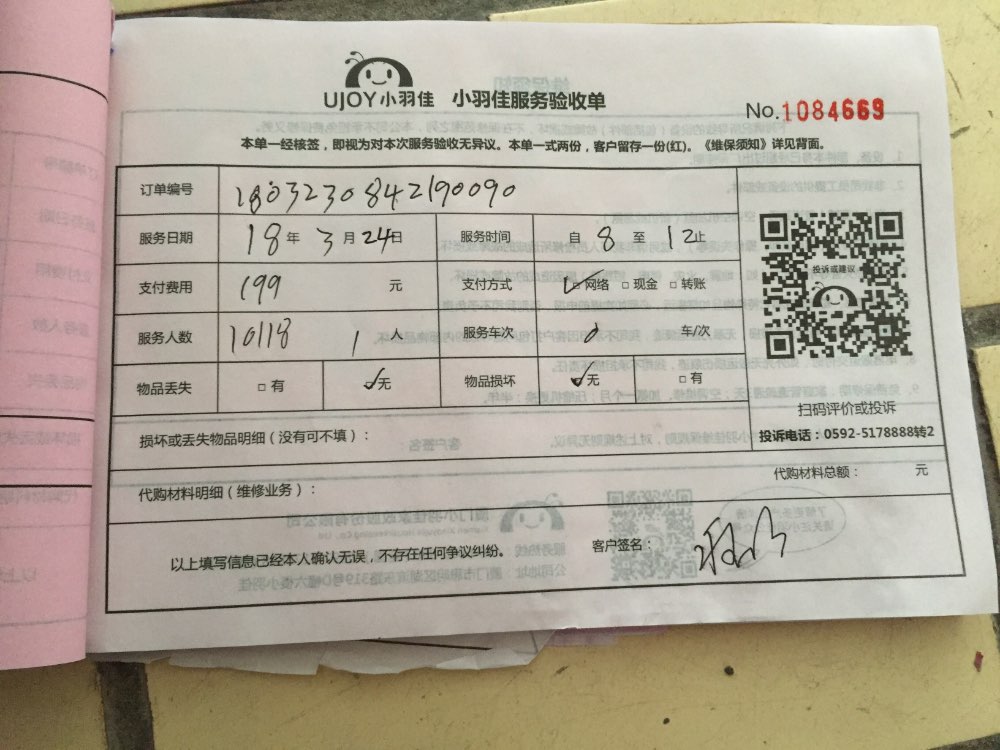 UJOY小羽佳 小羽佳服务验收单
No.1084669
本单一经核签，即视为对本次服务验收无异议。本单一式两份，客户留存一份(红)。《维保须知》详见背面。
订单编号 1803230842190090
服务日期 18年3月24日 服务时间 自8至12止
支付费用 199 元 支付方式 ✓□网络 □现金 □转账
服务人数 10118 1人 服务车次 0 车/次
物品丢失 □有 ✓无 物品损坏 ✓无 □有
投诉或建议
扫码评价或投诉
投诉电话：0592-5178888转2
损坏或丢失物品明细（没有可不填）：
代购材料明细（维修业务）： 代购材料总额： 元
以上填写信息已经本人确认无误，不存在任何争议纠纷。 客户签名：